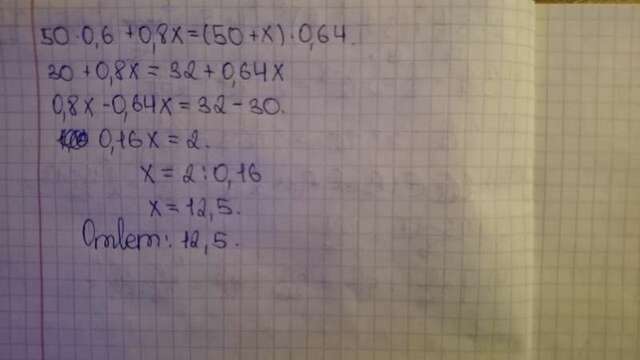 50·0,6+0,8x=(50+x)·0,64.
30+0,8x=32+0,64x
0,8x-0,64x=32-30.
0,16x=2.
x=2:0,16
x=12,5.
Ответ: 12,5.